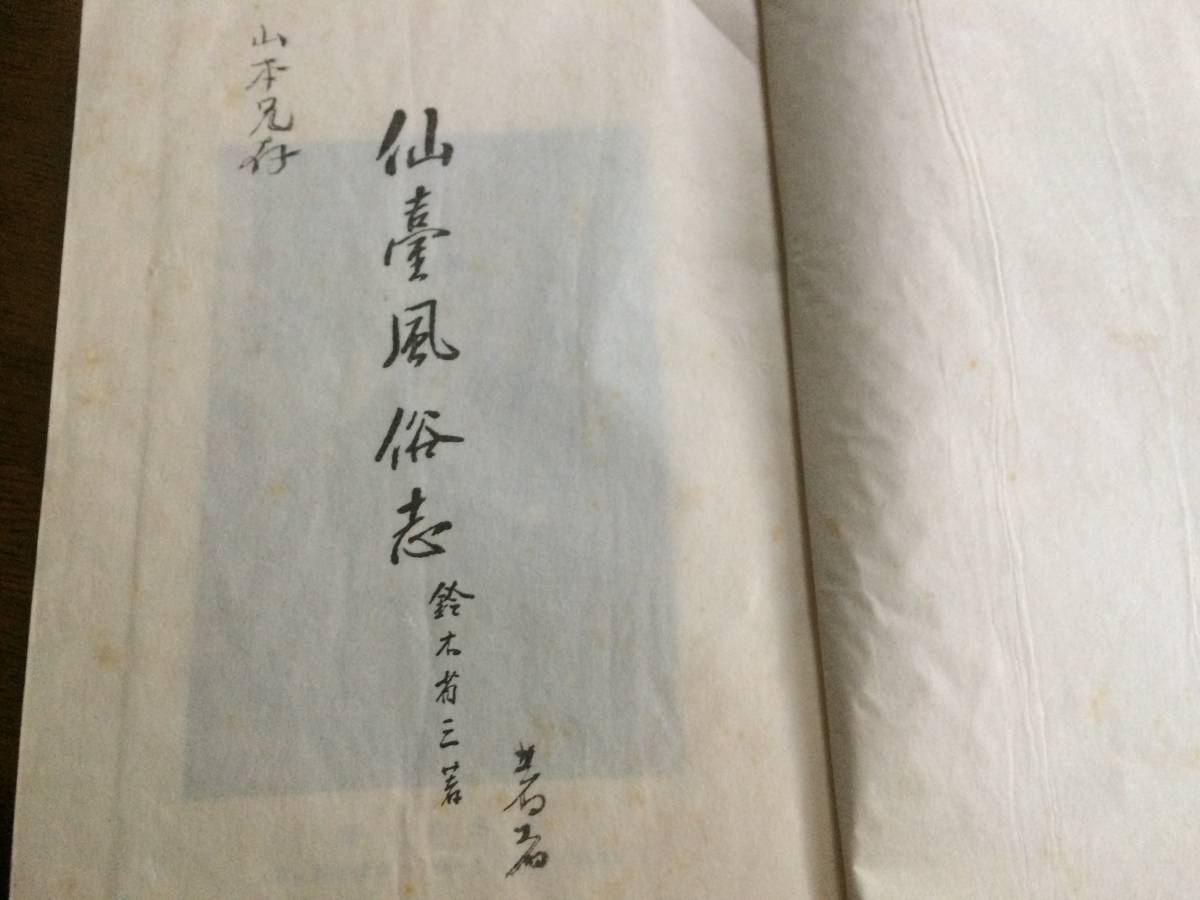 仙臺風俗志
鈴木省三著
著者
山本兄存